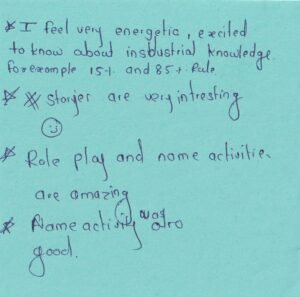 * I feel very energetic, excited
to know about insdustrial knowledge.
for example 15% and 85% Rule.
* Storyes are very intresting
* Role play and name activities
are amazing
* Name activity was also
good.